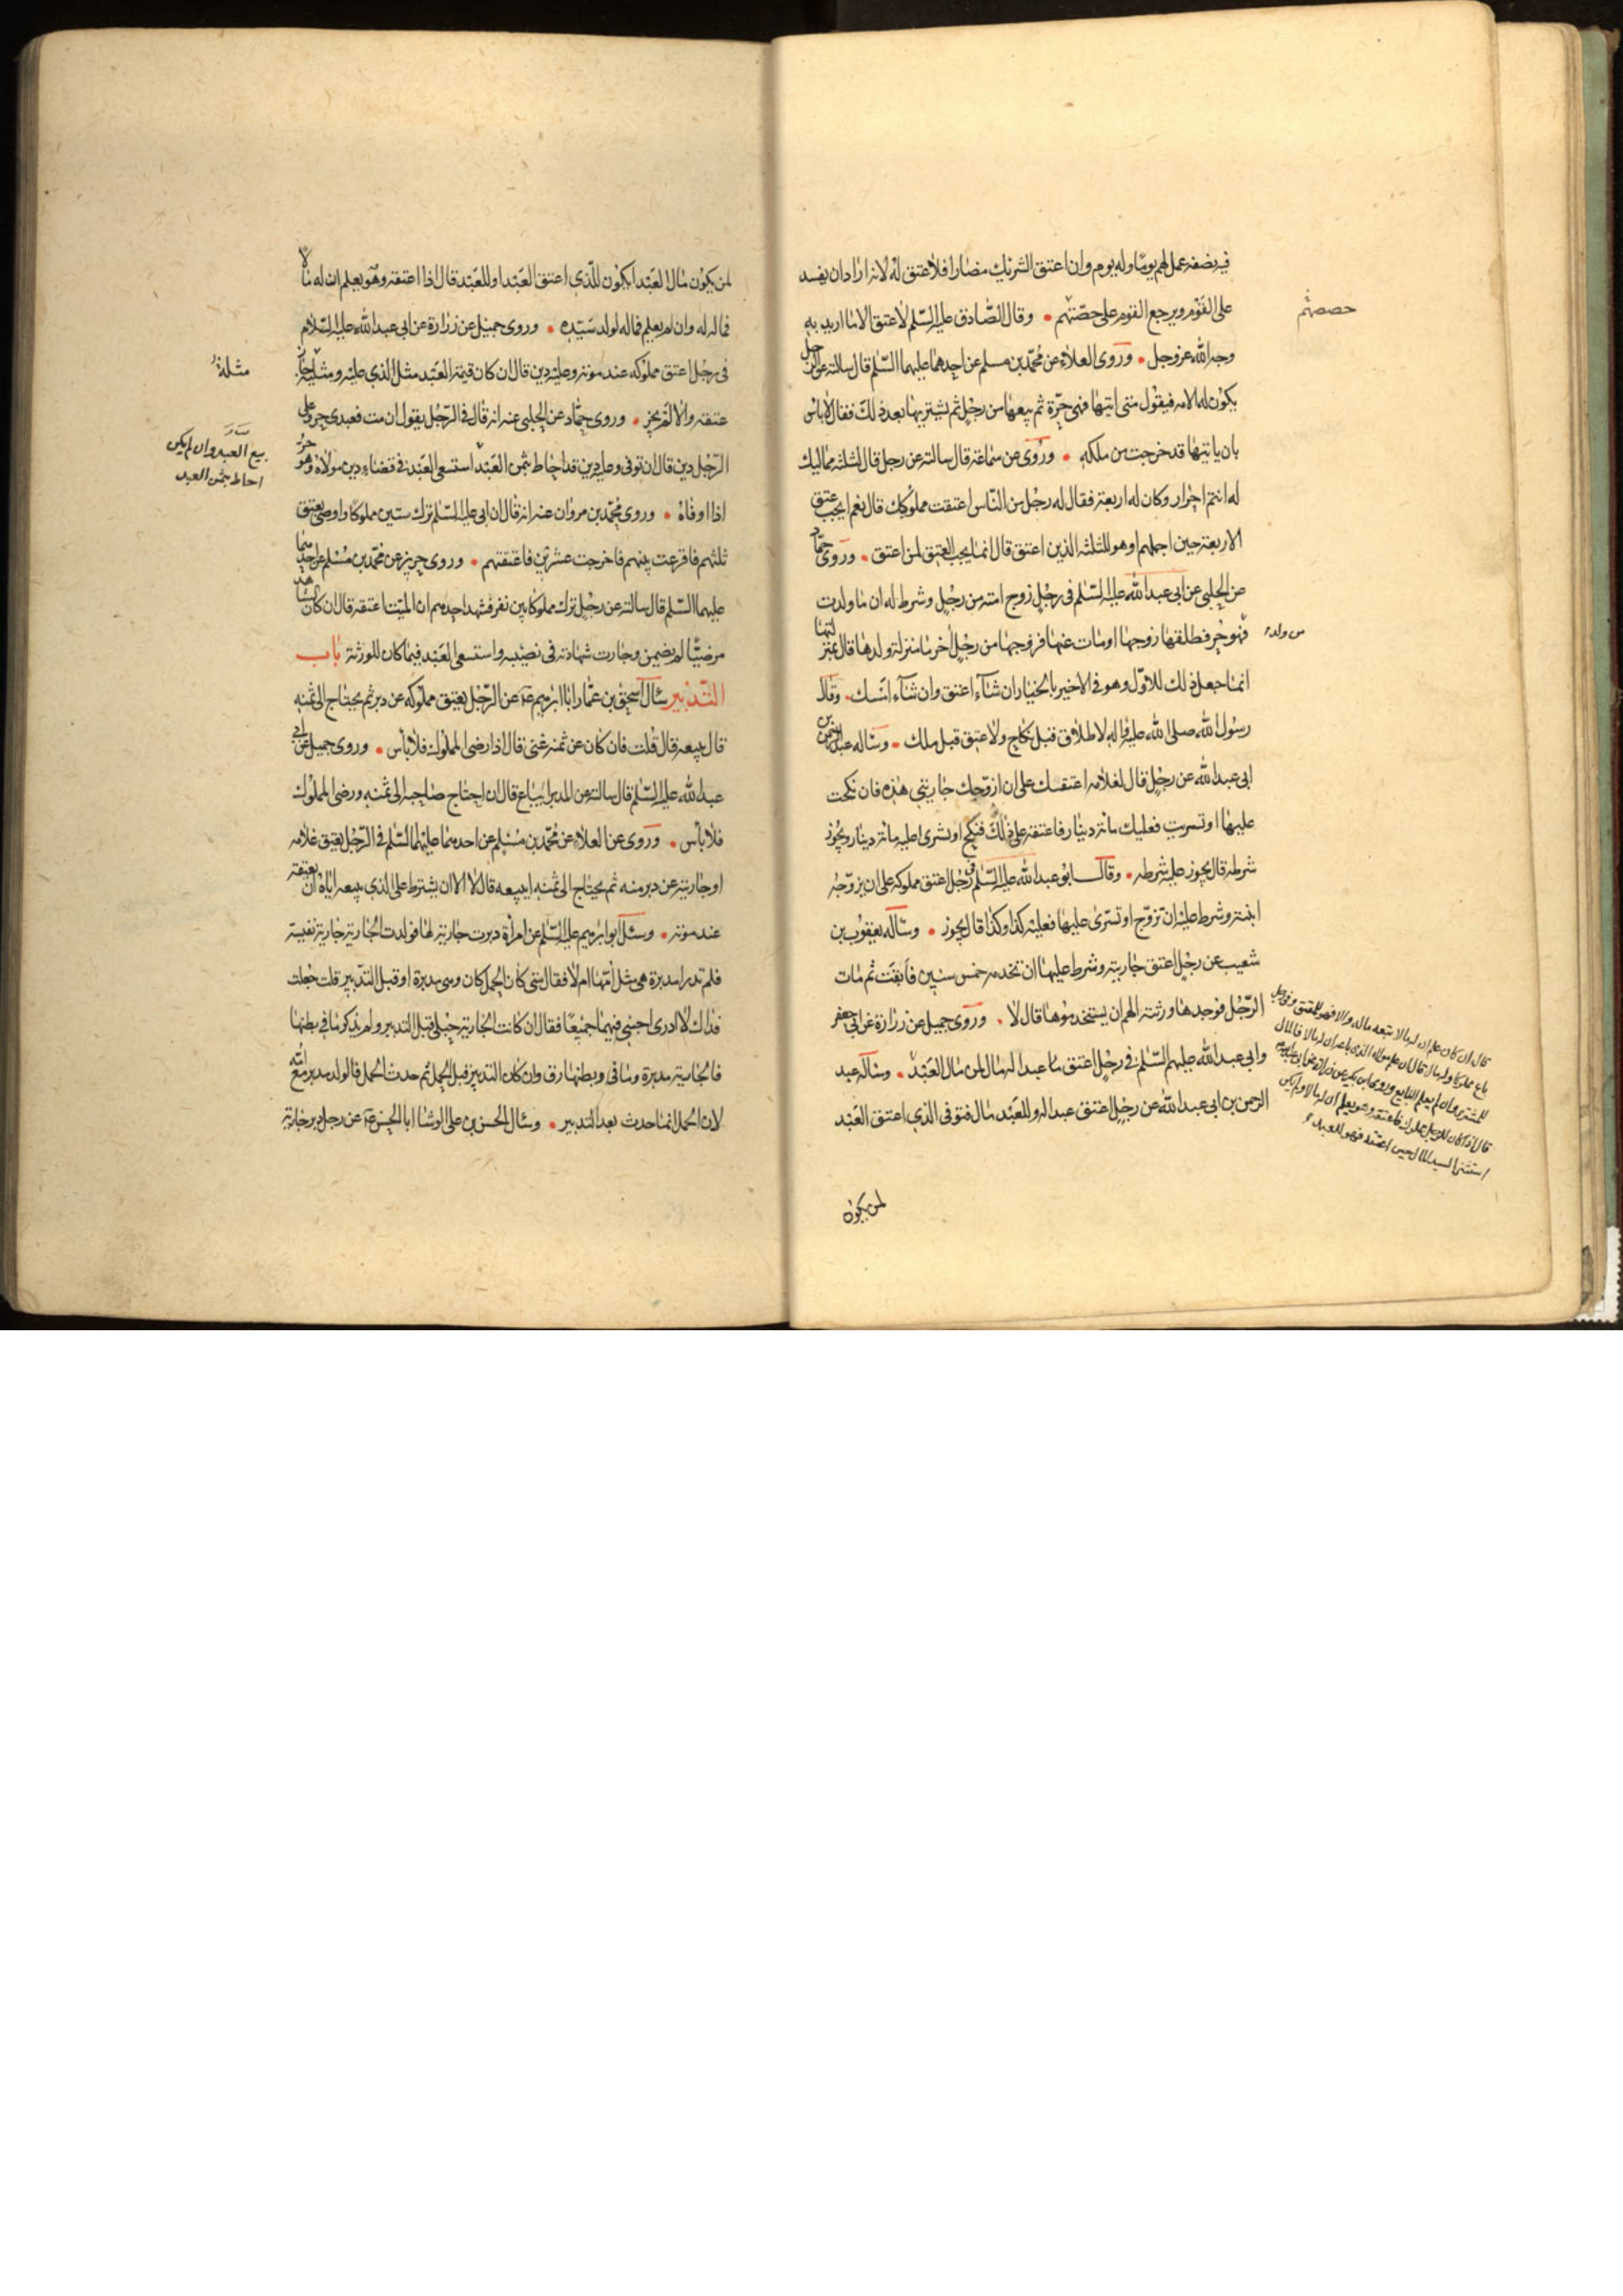 فيه نصفه عمل لهم يوما وله يوم وان اعتق الشريك مضارا فلا عتق له لانه اراد ان يفسد
على القوم ويرجع القوم على حصّتهم • وقال الصّادق عليه السّلم لا عتق الا ما اريد به
حصصهم
وجه الله عز وجل • وروى العلاء عن محمّد بن مسلم عن احدهما عليهما السّلم قال سالته عن الرجل
يكون له الامه فيقول متى اتيتها فهى حرّة ثم يبيعها من رجل ثم يشتريها بعد ذلك فقال لا باس
بان ياتيها قد خرجت من ملكه • وروى عن سماعة قال سالته عن رجل قال لثلثه مماليك
له انتم احرار وكان له اربعة فقال له رجل من النّاس اعتقت مملوكك قال نعم ايجب عتق
الاربعة حين اجملهم او هو للثلثه الذين اعتق قال انما يجب العتق لمن اعتق • وروى حمّاد
عن الحلبى عن ابى عبد الله عليه السّلم فى رجل زوج امته من رجل وشرط له ان ما ولدت
فهو حر فطلقها زوجها او مات عنها فزوجها من رجل اخر ما منزلة ولدها قال بمنزلتها
من ولد
انما جعل ذلك للاوّل وهو فى الاخير بالخيار ان شآء اعتق وان شآء امسك • وقال
رسول الله صلى الله عليه واله لا طلاق قبل نكاح ولا عتق قبل ملك • وساله عبد الرحمن بن
ابى عبد الله عن رجل قال لغلامه اعتقتك على ان ازوّجك جاريتى هذه فان نكحت
عليها او تسريت فعليك مائة دينار فاعتقه على ذلك فنكح او تسرى اعليه مائة دينار ويجوز
شرطه قال يجوز عليه شرطه • وقال ابو عبد الله عليه السّلم فى رجل اعتق مملوكه على ان يزوّجه
ابنته وشرط عليه ان تزوّج او تسرى عليها فعليه كذا وكذا قال يجوز • وساله يعقوب بن
شعيب عن رجل اعتق جاريته وشرط عليها ان تخدمه خمس سنين فابقت ثم مات
الرّجل فوجدها ورثته الهم ان يستخدموها قال لا • وروى جميل عن زرارة عن ابى جعفر
وابى عبد الله عليهم السّلم فى رجل اعتق عبدا له مال لمن مال العبد • وساله عبد
الرحمن بن ابى عبد الله عن رجل اعتق عبدا له وللعبد مال فتوفى الذى اعتق العبد
قال ان كان علم ان له مالا تبعه ماله والا فهو للمعتق وفى رجل
باع مملوكا وله مال قال ان علم مولاه الذى باعه ان له مالا فالمال
للمشترى وان لم يعلم البايع وروى ابن بكير عن زرارة عن ابى
قال اذا كان للرجل مملوك فاعتقه وهو يعلم ان له مالا ولم يكن
استثنى السيد المال حين اعتقه فهو للعبد
لمن يكون
لمن يكون مال العبد ايكون للّذى اعتق العبد او للعبد قال اذا اعتقه وهو يعلم ان له مالا
فماله له وان لم يعلم فماله لولد سيّده • وروى جميل عن زرارة عن ابى عبد الله عليه السّلام
فى رجل اعتق مملوكه عند موته وعليه دين قال ان كان قيمة العبد مثل الذى عليه ومثليه جاز
مثله
عتقه والا لم يجز • وروى حمّاد عن الحلبى عنه انه قال فى الرّجل يقول ان مت فعبدى حر وعلى
الرّجل دين قال ان توفى وعليه دين قد احاط بثمن العبد استسعى العبد فى قضاء دين مولاه وهو حرّ
بيع العبد وان لم يكن
احاط بثمن العبد
اذا اوفاه • وروى محمّد بن مروان عنه انه قال ان ابى عليه السّلم ترك ستين مملوكا واوصى بعتق
ثلثهم فاقرعت بينهم فاخرجت عشرين فاعتقتهم • وروى حريز عن محمّد بن مسلم عن احدهما
عليهما السّلم قال سالته عن رجل ترك مملوكا بين نفر فشهد احدهم ان الميّت اعتقه قال ان كان الشاهد
مرضيّا لم يضمن وجازت شهادته فى نصيبه واستسعى العبد فيما كان للورثة باب
التّدبير سال اسحق بن عمّار ابا ابرهيم عه عن الرّجل يعتق مملوكه عن دبر ثم يحتاج الى ثمنه
قال يبيعه قال قلت فان كان عن ثمنه غنى قال اذا رضى المملوك فلا باس • وروى جميل عن ابى
عبد الله عليه السّلم قال سالته عن المدبر ايباع قال ان احتاج صاحبه الى ثمنه ورضى المملوك
فلا باس • وروى عن العلاء عن محمّد بن مسلم عن احدهما عليهما السّلم فى الرّجل يعتق غلامه
او جاريته عن دبر منه ثم يحتاج الى ثمنه ايبيعه قال لا الا ان يشترط على الذى يبيعه اياه ان يعتقه
عند موته • وسئل ابو ابرهيم عليه السّلم عن امرأة دبرت جارية لها فولدت الجارية جارية نفيسة
فلم تدر امدبرة هى مثل امّها ام لا فقال متى كان الحمل كان وهى مدبرة او قبل التدبير قلت جعلت
فداك لا ادرى اجبنى فيهما جميعا فقال ان كانت الجارية حبلى قبل التدبير ولم يذكر ما فى بطنها
فالجارية مدبرة وما فى بطنها رق وان كان التدبير قبل الحمل ثم حدث الحمل فالولد مدبر مع امّه
لان الحمل انما حدث بعد التدبير • وسئال الحسن بن على الوشا ابا الحسن عه عن رجل دبر جارية